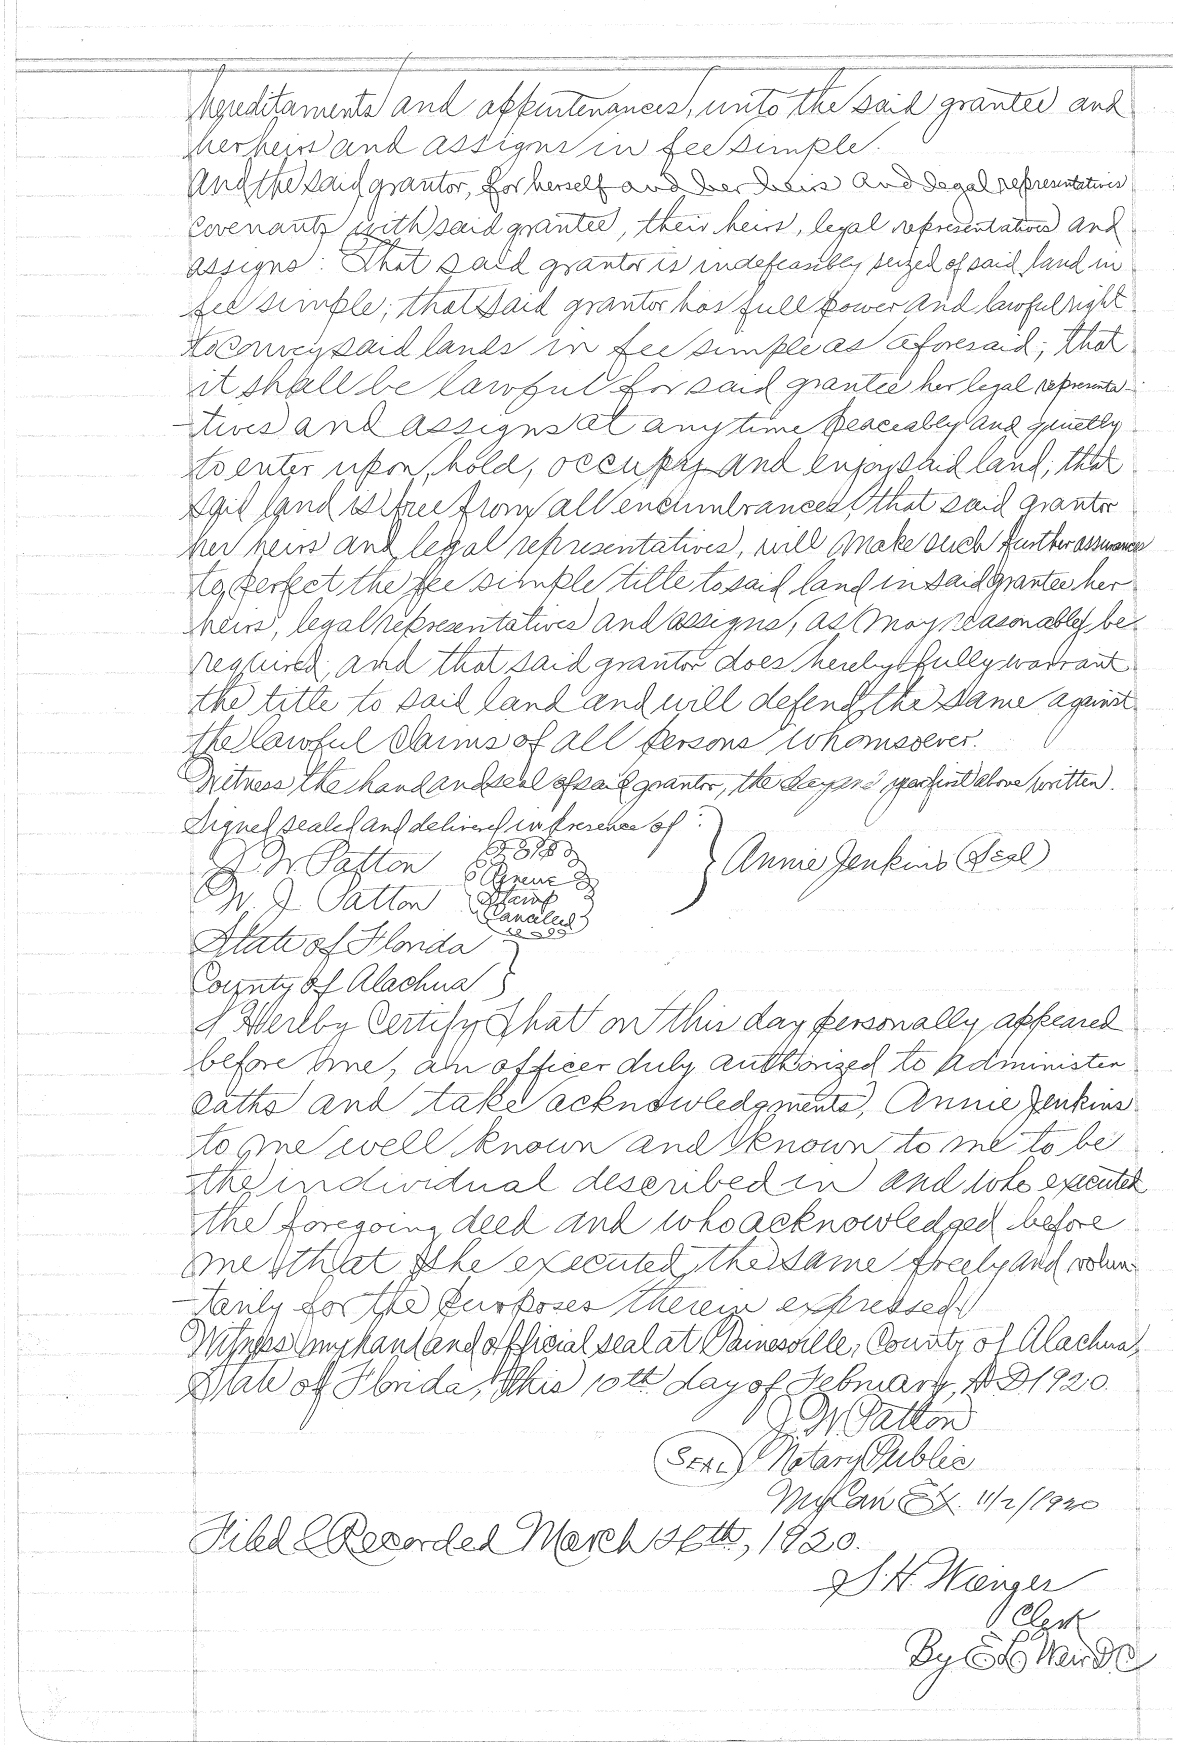 hereditaments and appurtenances, unto the said grantee and
her heirs and assigns in fee simple.
And the said grantor, for herself and her heirs and legal representatives
covenants with said grantee, their heirs, legal representatives and
assigns: That said grantor is indefeasibly seized of said land in
fee simple; that said grantor has full power and lawful right
to convey said lands in fee simple as aforesaid; that
it shall be lawful for said grantee her legal representa-
tives and assigns at any time peaceably and quietly
to enter upon, hold, occupy and enjoy said land; that
said land is free from all encumbrances, that said grantor
her heirs and legal representatives, will make such further assurances
to perfect the fee simple title to said land in said grantee her
heirs, legal representatives and assigns, as may reasonably be
required, and that said grantor does hereby fully warrant
the title to said land and will defend the same against
the lawful claims of all persons whomsoever.
Witness the hand and seal of said grantor, the day and year first above written.
Signed sealed and delivered in presence of:
J. W. Patton
Annie Jenkins (Seal)
W. J. Patton
Stamp
Canceled
State of Florida
County of Alachua
I Hereby Certify That on this day personally appeared
before me, an officer duly authorized to administer
oaths and take acknowledgments, Annie Jenkins
to me well known and known to me to be
the individual described in and who executed
the foregoing deed and who acknowledged before
me that she executed the same freely and volun-
tarily for the purposes therein expressed.
Witness my hand and official seal at Gainesville, County of Alachua,
State of Florida, this 10th day of February, A.D. 1920.
J. W. Patton
(SEAL) Notary Public
My Com Ex. 11/2/1920
Filed & Recorded March 16th, 1920.
S. H. Wienges
Clerk
By E L Weir DC